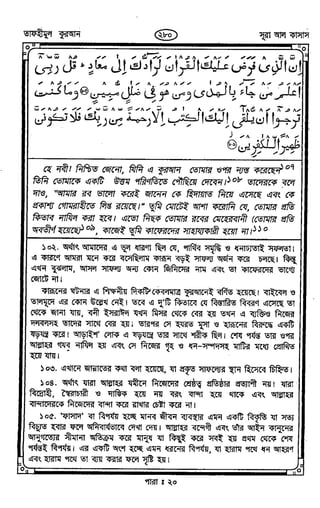 তাফহীমুল কুরআন
২৮০
সূরা আল কাসাস
إِنَّ الَّذِي فَرَضَ عَلَيْكَ الْقُرْآنَ لَرَادُّكَ إِلَىٰ مَعَادٍ ۚ قُلْ رَبِّي
أَعْلَمُ مَنْ جَاءَ بِالْهُدَىٰ وَمَنْ هُوَ فِي ضَلَالٍ مُبِينٍ ۝ وَمَا كُنْتَ
تَرْجُو أَنْ يُلْقَىٰ إِلَيْكَ الْكِتَابُ إِلَّا رَحْمَةً مِنْ رَبِّكَ فَلَا تَكُونَنَّ
ظَهِيرًا لِلْكَافِرِينَ
হে নবী! নিশ্চিত জেনো, যিনি এ কুরআন তোমার ওপর ন্যস্ত করেছেন১০৭
তিনি তোমাকে একটি উত্তম পরিণতিতে পৌঁছিয়ে দেবেন।১০৮ তাদেরকে বলে
দাও, "আমার রব ভালো করেই জানেন কে হিদায়াত নিয়ে এসেছে এবং কে
প্রকাশ্য গোমরাহীতে লিপ্ত রয়েছে।" তুমি মোটেই আশা করোনি যে, তোমার প্রতি
কিতাব নাযিল করা হবে। এতো নিছক তোমার রবের মেহেরবানী (তোমার প্রতি
অবতীর্ণ হয়েছে)১০৯, কাজেই তুমি কাফেরদের সাহায্যকারী হয়ো না।১১০
১০২. অর্থাৎ আমাদের এ ভুল ধারণা ছিল যে, পার্থিব সমৃদ্ধি ও ধনাঢ্যতাই সফলতা।
এ কারণে আমরা মনে করে বসেছিলাম কারূন বড়ই সাফল্য অর্জন করে চলছে। কিন্তু
এখন বুঝলাম, আসল সাফল্য অন্য কোন জিনিসের নাম এবং তা কাফেরদের ভাগ্যে
জোটে না।
কারূনের ঘটনার এ শিক্ষনীয় দিকটি কেবলমাত্র কুরআনেই বর্ণিত হয়েছে। বাইবেল ও
তালমূদে এর কোন উল্লেখ নেই। তবে এ দু'টি কিতাবে যে বিস্তারিত বিবরণ এসেছে তা
থেকে জানা যায়, বনী ইসরাঈল যখন মিসর থেকে বের হয় তখন এ ব্যক্তিও নিজের
দলবলসহ তাদের সাথে বের হয়। তারপর সে হযরত মূসা ও হারূনের বিরুদ্ধে একটি
ষড়যন্ত্র করে। আড়াইশ' লোক এ ষড়যন্ত্রে তার সাথে শরীক ছিল। শেষ পর্যন্ত তার ওপর
আল্লাহর গযব নাযিল হয় এবং সে নিজের গৃহ ও ধন-সম্পদসহ মাটির মধ্যে প্রোথিত
হয়ে যায়।
১০৩. এখানে জান্নাতের কথা বলা হয়েছে, যা প্রকৃত সাফল্যের স্থান হিসেবে চিহ্নিত।
১০৪. অর্থাৎ যারা আল্লাহর যমীনে নিজেদের শ্রেষ্ঠত্ব প্রতিষ্ঠার প্রত্যাশী নয়। যারা
বিদ্রোহী, স্বৈরাচারী ও দাম্ভিক হয়ে নয় বরং বান্দা হয়ে থাকে এবং আল্লাহর
বান্দাদেরকে নিজেদের বান্দা করে রাখার চেষ্টা করে না।
১০৫. 'ফাসাদ' বা বিপর্যয় হচ্ছে মানব জীবন ব্যবস্থার এমন একটি বিকৃতি যা সত্য
বিচ্যুত হবার ফলে অনিবার্যভাবে দেখা দেয়। আল্লাহর বন্দেগী এবং তাঁর আইন কানুনের
আনুগত্যের সীমানা অতিক্রম করে মানুষ যা কিছুই করে সবই হয় প্রথম থেকে শেষ
পর্যন্তই বিপর্যয়। এর একটি অংশ হচ্ছে এমন ধরনের বিপর্যয়, যা হারাম পথে ধন আহরণ
এবং হারাম পথে তা ব্যয় করার ফলে সৃষ্টি হয়।
পারা : ২০